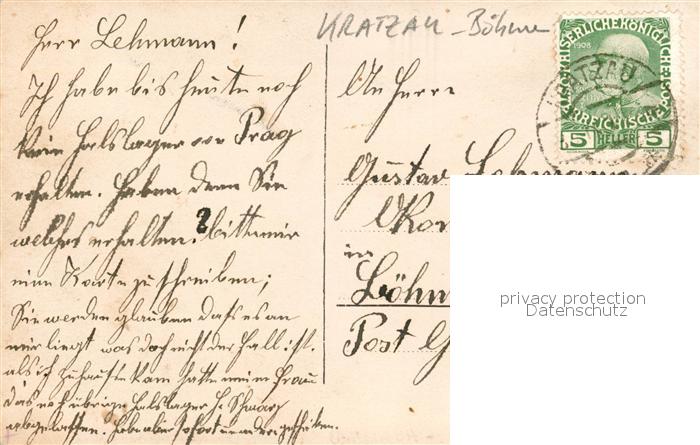 KRATZAU - Böhme
Herr Lehmann!
Ich habe bis heute noch
kein Halslager von Prag
erhalten. Haben denn Sie
welches erhalten? bitte mir
eine Karte zu schreiben;
Sie werden glauben dass es an
mir liegt was doch nicht der Fall ist.
als ich zuhause kam hatte meine Frau
das noch übrige Halslager H. Schwarz
abgelassen. Habe aber sofort
An Herrn
Gustav Lehmann
in
Böhm
Post G
KAISERLICHE KÖNIGLICHE
1908
ÖSTERREICHISCHE POST
5 HELLER 5
KRATZAU
privacy protection
Datenschutz